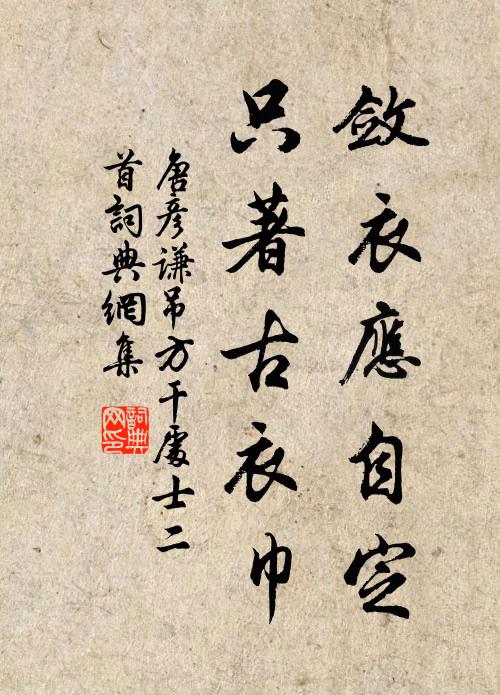 斂衣應自定
只著古衣巾
唐彥謙吊方干處士二
首詞典網集
詞典
网印